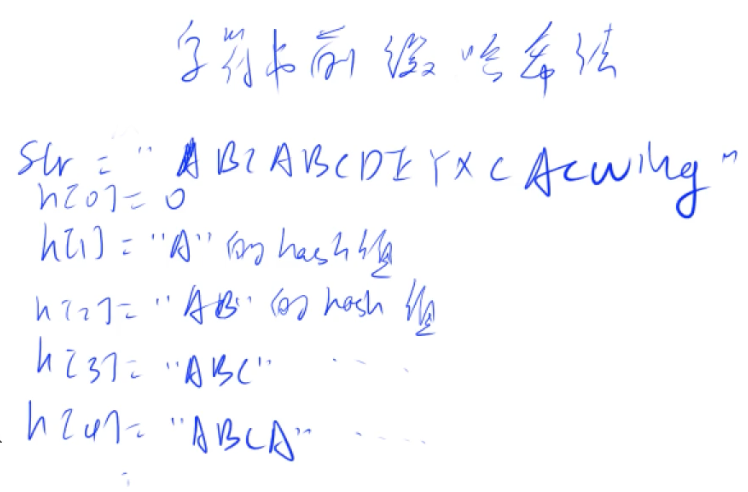 字符串前缀哈希法
Str = "ABCABCDEYXCAcwing"
h[0]=0
h[1]="A"的hash值
h[2]="AB"的hash值
h[3]="ABC" ....
h[4]="ABCA" ....